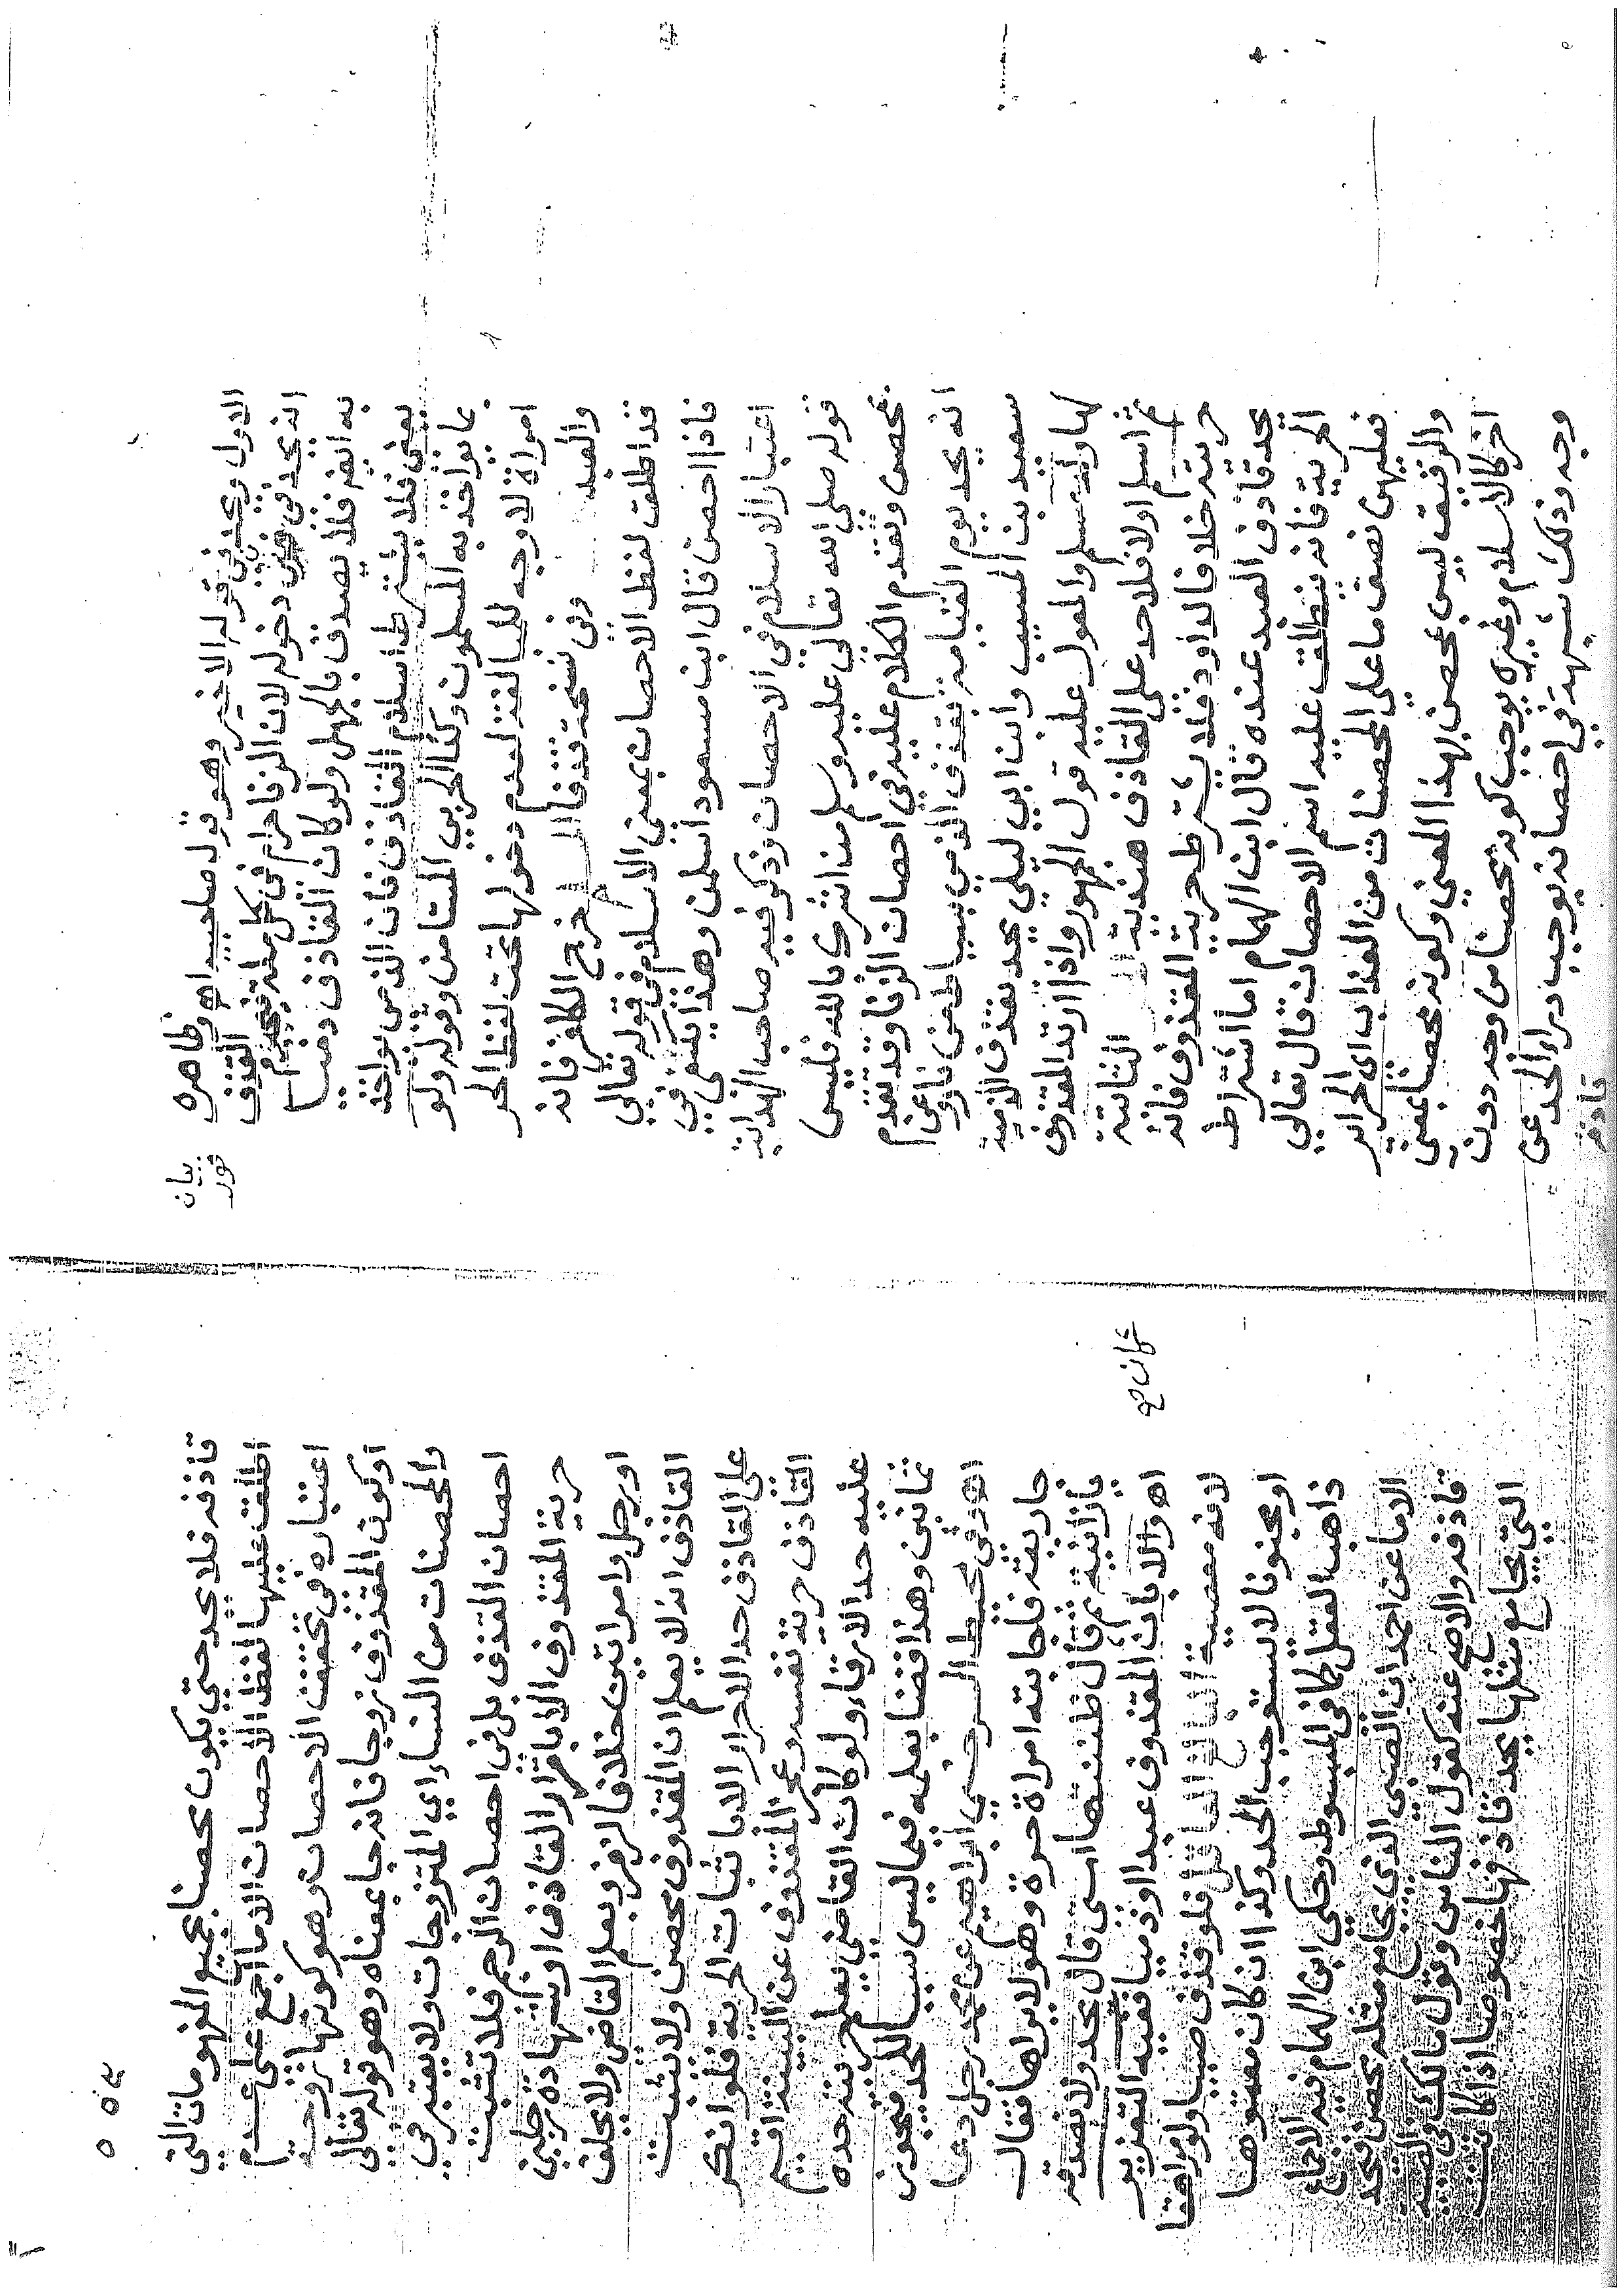 الاول ويحد في قوله الاخير وهو قول صاحبيه اهـ وظاهره
انه يحد في حق دخوله لان الزنا حرام في كل ملة فيحرم القذف
به ايضا فلا يصدق بالجهل ولو كان القاذف ذميا
يعني فلا يشترط اسلام القاذف فان الذمي يواخذ
بما يواخذ به المسلمون وكذا الحربي المستامن وقوله ولو
امراة لا وجه للمبالغة لعدم دخولها تحت لفظ الحر
والعبد وفي نسخة قذفا لمسلم خرج الكافر فانه
قد اطلق لفظ الاحصان بمعنى الاسلام في قوله تعالى
فاذا احصن قال ابن مسعود اسلمن وهذا يكفي في
اعتبار الاسلام في الاحصان وذكر فيه صاحب الهداية
قوله صلى الله تعالى عليه وسلم من اشرك بالله فليس
بمحصن وتقدم الكلام عليه في احصان الزنا وقد تقدم
انه يحد يوم القيامة بقذف الذمي بسياط من نار وعن
سعيد بن المسيب وابن ابي ليلى يحد بقذف الذمية
لها ولد مسلم والمعول عليه قول الجمهور واذا ارتد المقذوف
ثم اسلم اولا فلا حد على القاذف هندية الثانية
حريته خلافا لداود فلا يشترط حرية المقذوف فانه
يحد قاذف العبد عنده قال ابن الهمام اما اشتراط
الحرية فانه ينطلق عليه اسم الاحصان قال تعالى
فعليهن نصف ما على المحصنات من العذاب اي الحراير
والرقيق ليس بمحصن بهذا المعنى وكونه محصنا بمعنى
اخر كالاسلام وغيره يوجب كونه محصنا من وجه دون
وجه وذلك شبهة في احصانه يوجب دراء الحد عن
قاذفه
بيان
قوله
قاذفه فلا يحد حتى يكون محصنا بجميع المفهومات التي
اطلق عليها لفظ الاحصان الا ما اجمع على عدم
اعتباره في تحقق الاحصان وهو كونها زوجة
او كون المقذوف زوجا فانه جا بمعناه وهو قوله تعالى
والمحصنات من النساء اي المتزوجات ولا يعتبر في
احصان القذف بل في احصان الرجم فلا تثبت
حرية المقذوف الا باقرار القاذف او شهادة رجلين
او رجل وامراتين خلافا لزفر وبعلم القاضي ولا يحلف
القاذف انه لا يعلم ان المقذوف محصن ولا يثبت
على القاذف حد الاحرار الا باثبات الحرية فلو انكر
القاذف حرية نفسه وعجز المقذوف عن البينة اقيم
عليه حد الارقاء ولو كان القاضي يعلم حريته حده
ثمانين وهذا قضا بعلمه فيما ليس سببا للحد فيجوز
اهـ وفي محيط السرخسي ابراهيم عن محمد رجل دعا
جاريته فلجابته امراة حرة وهو لا يراها فقال
يا زانية ثم قال ظننتها امتي قال يحد ولا نصدقه
اهـ والا بان المقذوف عبدا او ذميا ففيه التعزير
لانه معصية البالغ العاقل فلو قذف صبيا ولو مراهقا
او مجنونا لا يستوجب الحد وكذا ان كان معتوها
ذاهب العقل كما في المبسوط وحكى ابن الهمام فيه الاجماع
الا ما عن احمد ان الصبي الذي يجامع مثله محصن فيحد
قاذفه والاصح عنه كقول الناس وقول مالك في الصبية
التي يجامع مثلها يحد قاذفها خصوصا اذا كانت